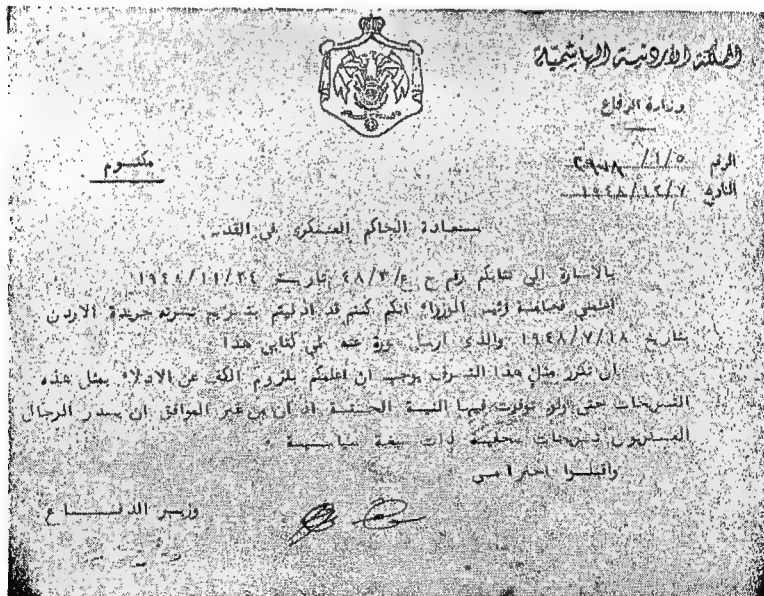 المملكة الأردنية الهاشمية
وزارة الدفاع
الرقم ١/٥/
التاريخ ١٩٤٨/١٢/٧
مكتوم
سعادة الحاكم العسكري في القدس
بالاشارة الى كتابكم رقم ح ع/٤٨/٣ تاريخ ١٩٤٨/١١/٢٤
فخامة رئيس الوزراء انكم كنتم قد ادليتم بتصريح نشرته جريدة الاردن
بتاريخ ١٩٤٨/٧/١٨ والذي ارسل صورة عنه طي كتابي هذا
ان تكرر مثل هذا التصرف يوجب ان أعلمكم بلزوم الكف عن الادلاء بمثل هذه
التصريحات حتى ولو توفرت فيها النية الحسنة اذ ان من غير الموافق ان يصدر الرجال
العسكريون تصريحات صحفية ذات صبغة سياسية ٠
واقبلوا احترامي
وزير الدفاع